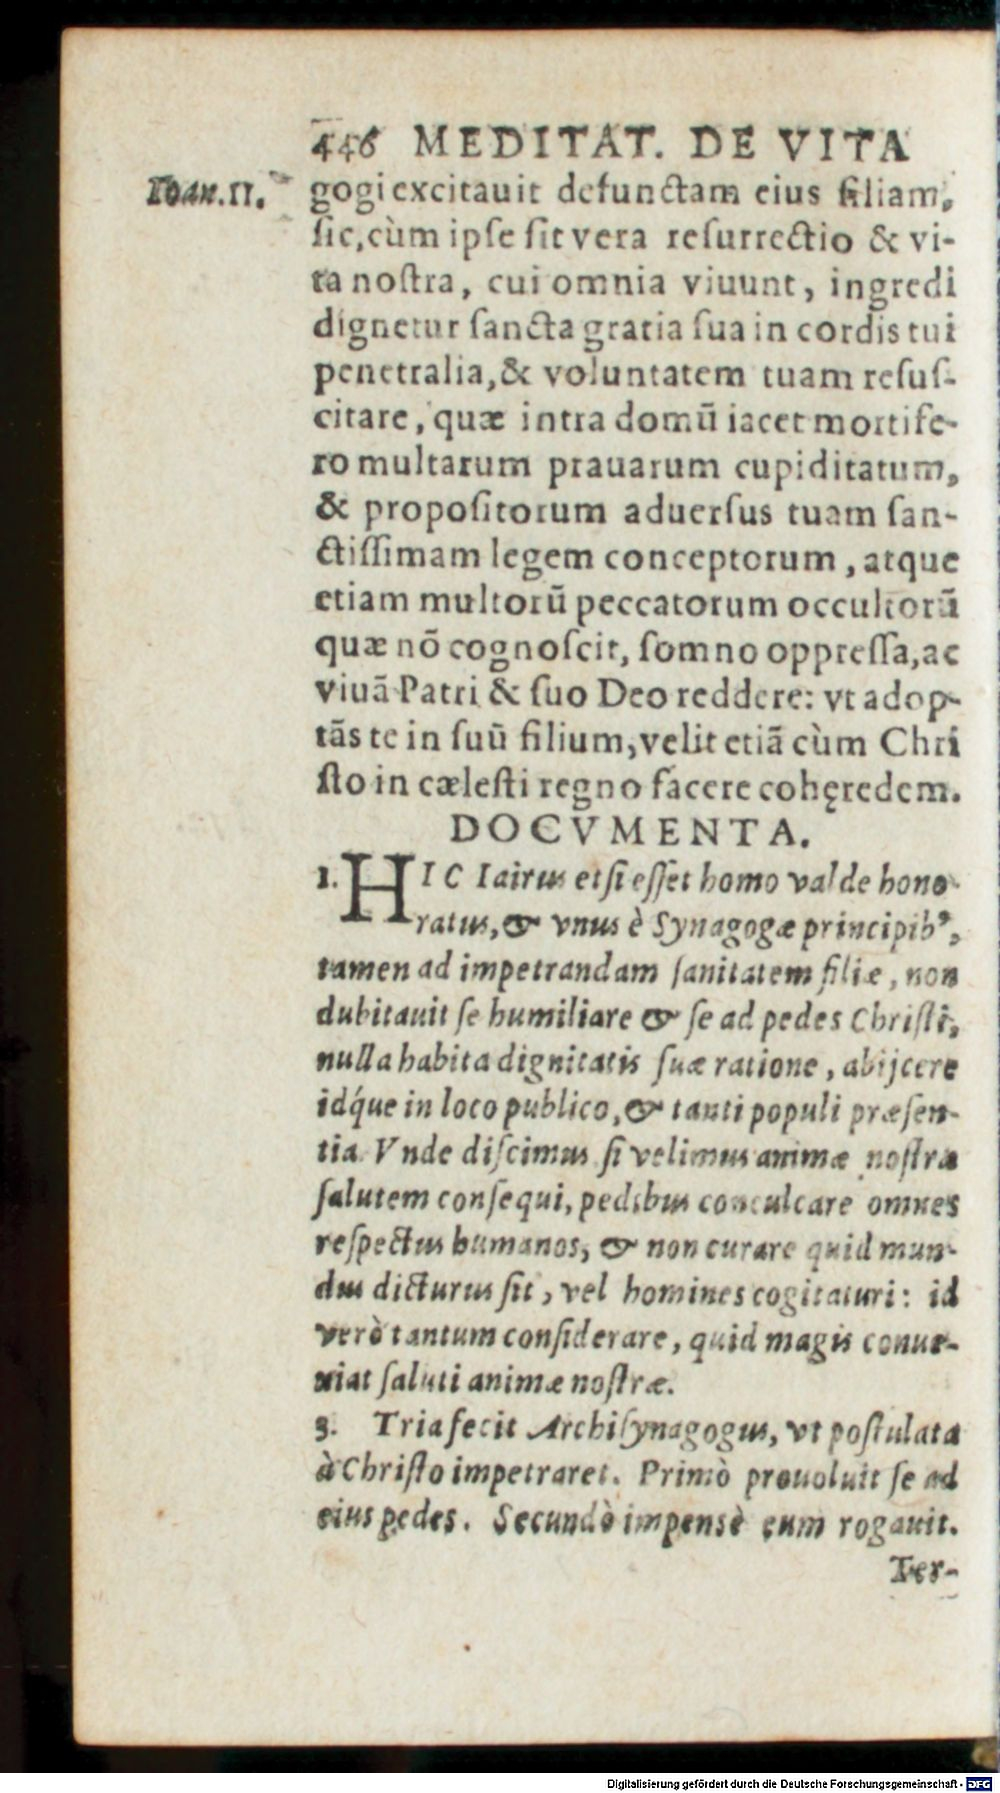 446 MEDITAT. DE VITA
Ioan. 11.
gogi excitauit defunctam eius filiam,
sic, cùm ipse sit vera resurrectio & vi-
ta nostra, cui omnia viuunt, ingredi
dignetur sancta gratia sua in cordis tui
penetralia, & voluntatem tuam resus-
citare, quæ intra domũ iacet mortife-
ro multarum prauarum cupiditatum,
& propositorum aduersus tuam san-
ctissimam legem conceptorum, atque
etiam multorũ peccatorum occultorũ
quæ nõ cognoscit, somno oppressa, ac
viuã Patri & suo Deo reddere: vt adop-
tãs te in suũ filium, velit etiã cùm Chri
sto in cælesti regno facere cohęredem.
DOCVMENTA.
1. HIC Iairus etsi esset homo valde hono-
ratus, & vnus è Synagogæ principib⁹,
tamen ad impetrandam sanitatem filiæ, non
dubitauit se humiliare & se ad pedes Christi,
nulla habita dignitatis suæ ratione, abijcere
idq́ue in loco publico, & tanti populi præsen-
tia. Vnde discimus si velimus animæ nostræ
salutem consequi, pedibus conculcare omnes
respectus humanos, & non curare quid mun-
dus dicturus sit, vel homines cogitaturi: id
verò tantum considerare, quid magis conue-
niat saluti animæ nostræ.
3. Tria fecit Archisynagogus, vt postulata
à Christo impetraret. Primò prouoluit se ad
eius pedes. Secundò impensè eum rogauit.
Ter-
Digitalisierung gefördert durch die Deutsche Forschungsgemeinschaft - DFG